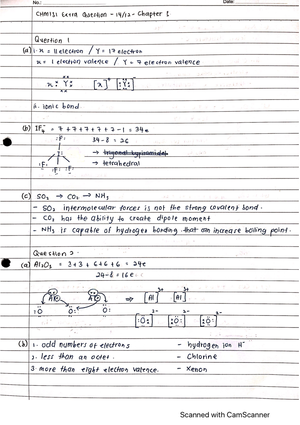 No.: Date:
CHM131 Extra Question - 19/12 - Chapter 1
Question 1
(a) i. x = 11 electron / Y = 17 electron
x = 1 electron valence / Y = 7 electron valence
x Y [x]⁺ [Y]⁻
ii. Ionic bond
(b) IF₄⁻ = 7 + 7 + 7 + 7 + 7 - 1 = 34e
34 - 8 = 26
F
F I F F
→ tetrahedral
(c) SO₂ → CO₂ → NH₃
- SO₂ intermolecular forces is not the strong covalent bond.
- CO₂ has the ability to create dipole moment
- NH₃ is capable of hydrogen bonding that can increase boiling point.
Question 2
(a) Al₂O₃ = 3 + 3 + 6 + 6 + 6 = 24e
24 - 8 = 16e
Al Al ⇒ [Al]³⁺ [Al]³⁺
O O O [O]²⁻ [O]²⁻ [O]²⁻
(b) 1. odd numbers of electrons - hydrogen ion H⁻
2. less than an octet - Chlorine
3. more than eight electron valence. - Xenon
Scanned with CamScanner